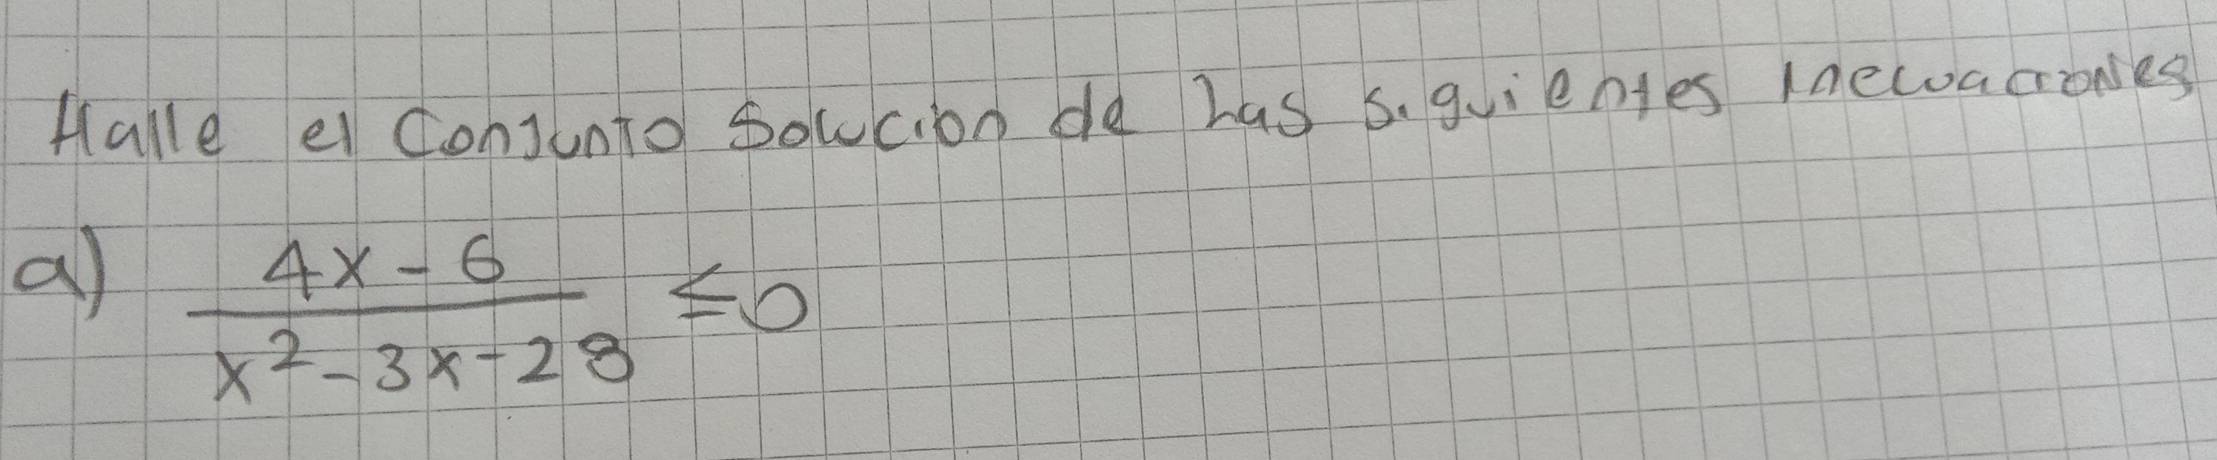 Halle el Conjunto Solucion de Las siguientes Inecuaciones
a) 4x - 6
x² - 3x - 28 ≤ 0